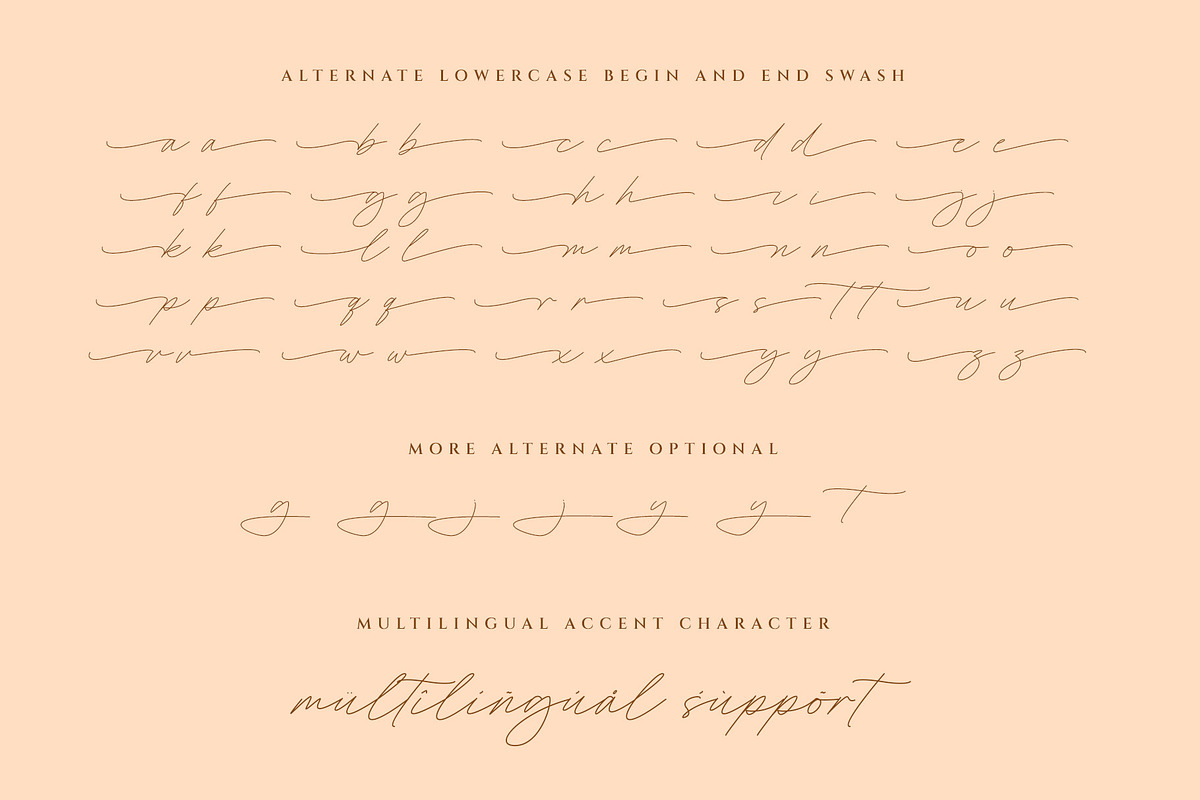 ALTERNATE LOWERCASE BEGIN AND END SWASH
a a b b c c d d e e
f f g g h h i i j j
k k l l m m n n o o
p p q q r r s s t t u u
v v w w x x y y z z
MORE ALTERNATE OPTIONAL
g g j j y y t
MULTILINGUAL ACCENT CHARACTER
mültîlíñgúål śùppõrt